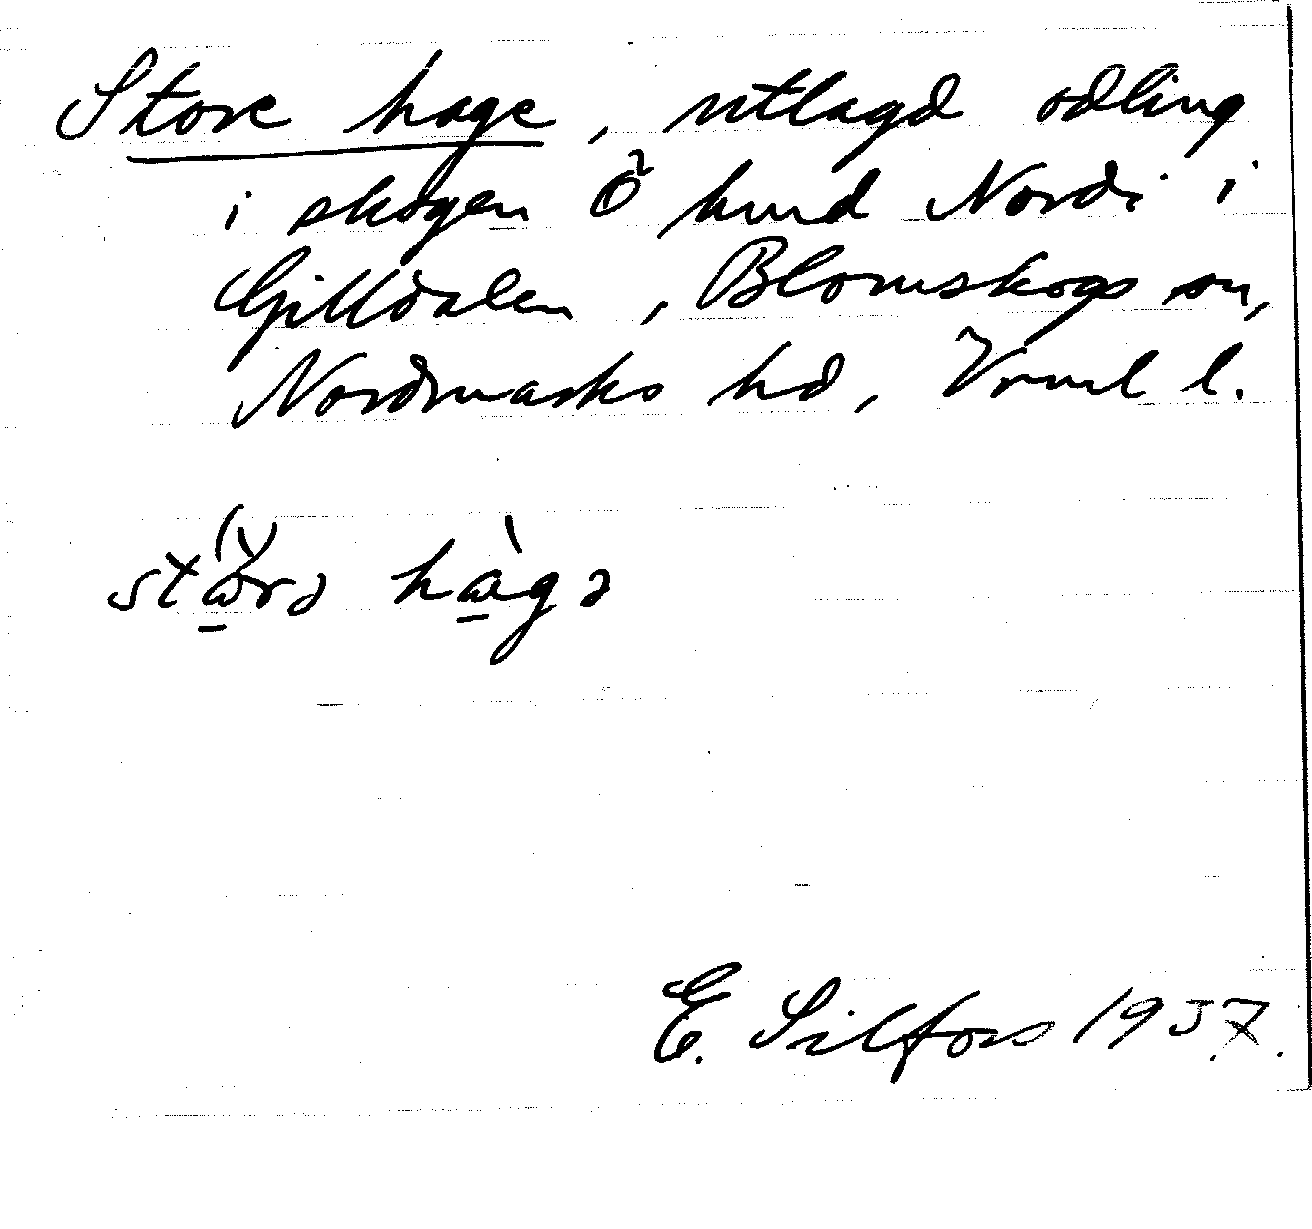 Store hage, utlagd odling
i skogen Ö hmd Nordi i
Gilldalen, Blomskogs sn,
Nordmarks hd, Vrml l.
hàgə
E. Silfors 1937.